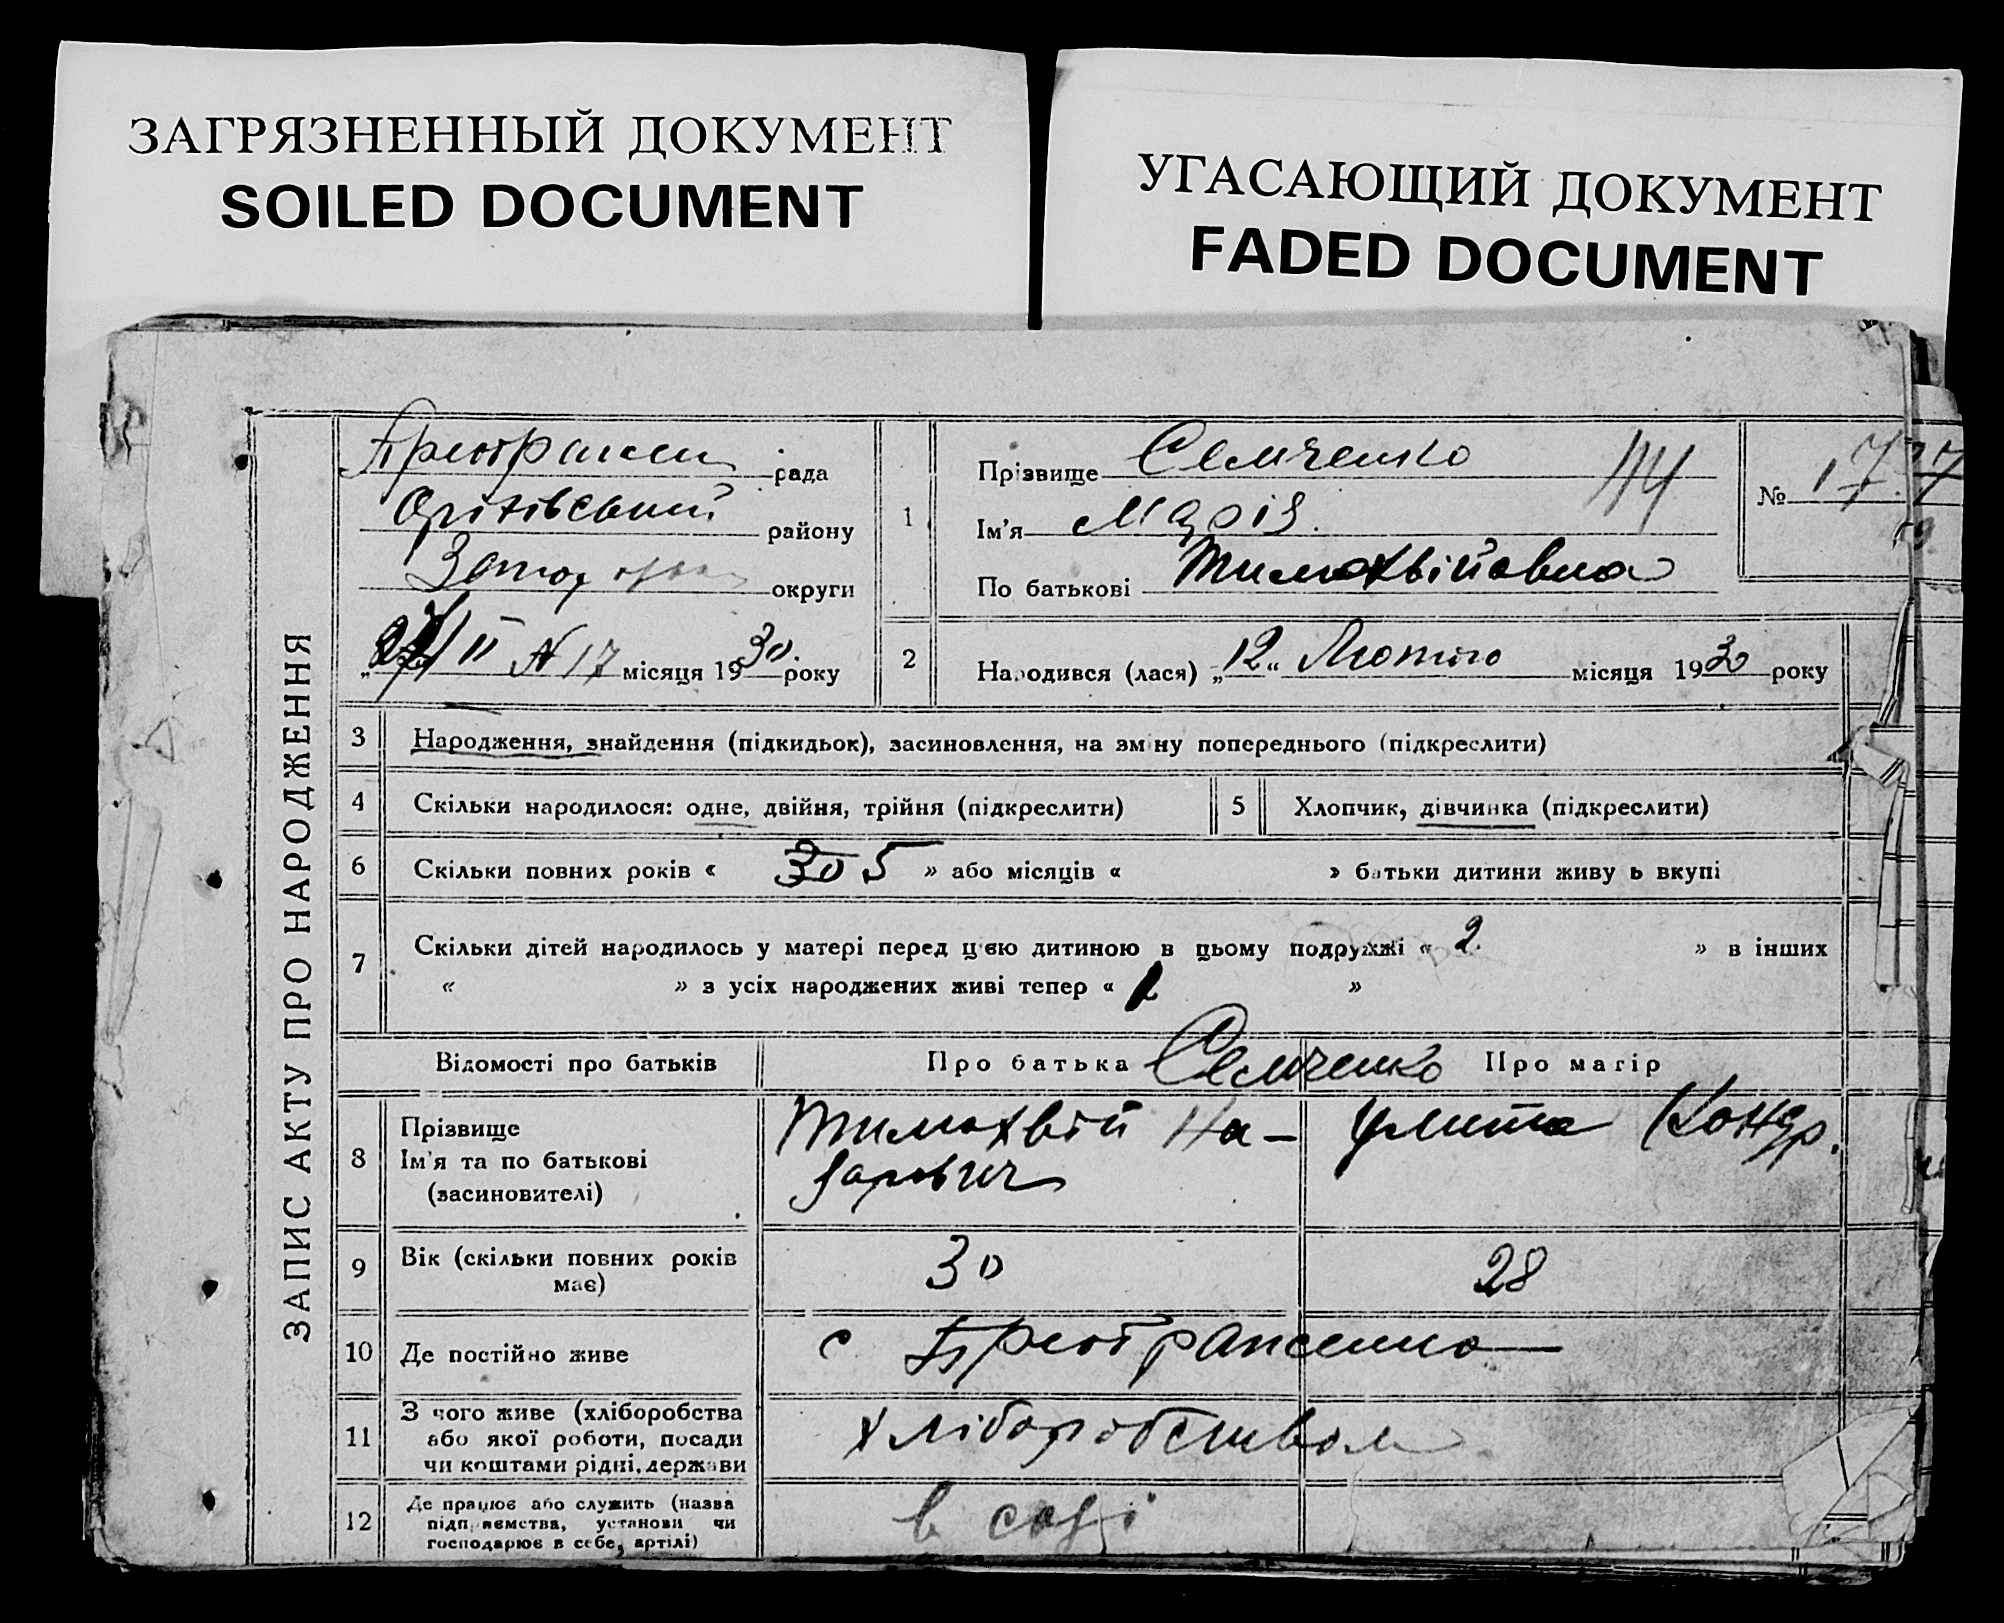 ЗАГРЯЗНЕННЫЙ ДОКУМЕНТ
SOILED DOCUMENT
УГАСАЮЩИЙ ДОКУМЕНТ
FADED DOCUMENT
ЗАПИС АКТУ ПРО НАРОДЖЕННЯ
рада
Оріхівський району
округи
II № 17 місяця 1930 року
1
Прізвище Семченко
Ім'я Марія.
По батькові Тимохвійовна
№ 17
2
Народився (лася) „12“ Лютого місяця 1930 року
3 Народження, знайдення (підкидьок), засиновлення, на зміну попереднього (підкреслити)
4 Скільки народилося: одне, двійня, трійня (підкреслити)
5 Хлопчик, дівчинка (підкреслити)
6 Скільки повних років « 30 5 » або місяців « » батьки дитини живуть вкупі
7 Скільки дітей народилось у матері перед цією дитиною в цьому подружжі « 2 » в інших
« » з усіх народжених живі тепер « »
Відомості про батьків Про батька Семченко Про матір
8 Прізвище
Ім'я та по батькові
(засиновителі)
Тимохвій На-
зарович
Улита Кондр.
9 Вік (скільки повних років
має)
30
28
10 Де постійно живе
с Преображенка
11 З чого живе (хліборобства
або якої роботи, посади
чи коштами рідні, держави
хліборобством
12 Де працює або служить (назва
підприємства, установи чи
господарює в себе, артілі)
в созі